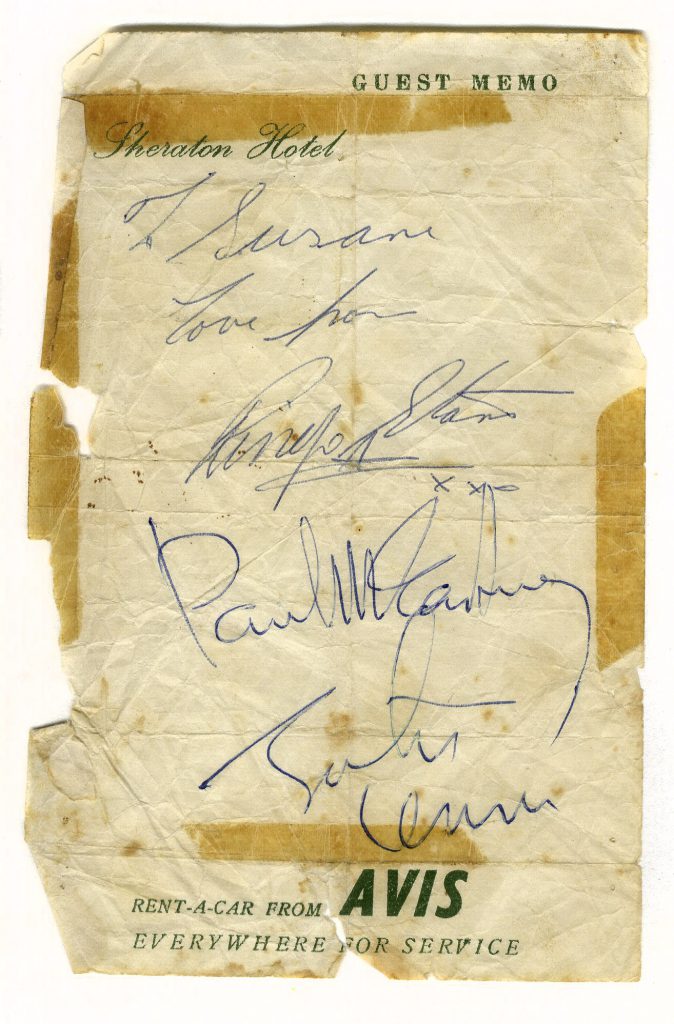 GUEST MEMO
Sheraton Hotel
To Susane
love from
Ringo Starr
xxo
Paul McCartney
John
Lennon
RENT-A-CAR FROM AVIS
EVERYWHERE FOR SERVICE